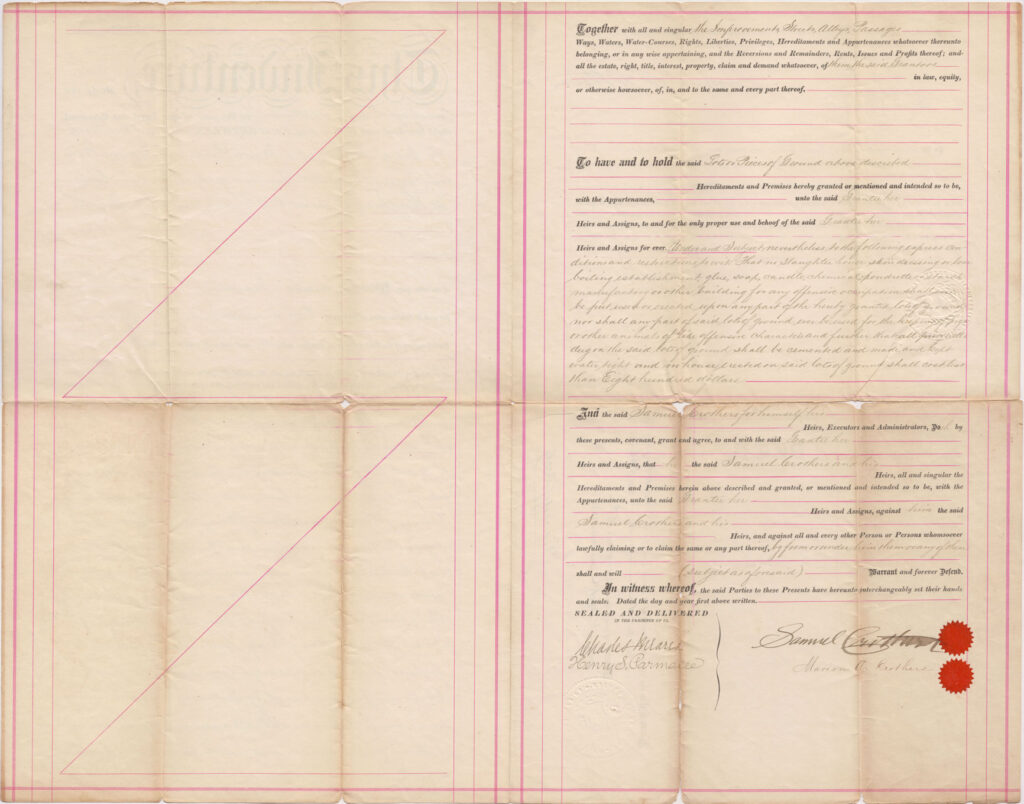 Together with all and singular the Improvements, Streets, Alleys, Passages
Ways, Waters, Water-Courses, Rights, Liberties, Privileges, Hereditaments and Appurtenances whatsoever thereunto
belonging, or in any wise appertaining, and the Reversions and Remainders, Rents, Issues and Profits thereof; and
all the estate, right, title, interest, property, claim and demand whatsoever, of them the said Grantors
in law, equity,
or otherwise howsoever, of, in, and to the same and every part thereof.
To have and to hold the said Lots or Pieces of Ground above described
Hereditaments and Premises hereby granted or mentioned and intended so to be,
with the Appurtenances, unto the said Grantee her
Heirs and Assigns, to and for the only proper use and behoof of the said Grantee her
Heirs and Assigns for ever. Under and Subject, nevertheless, to the following express con
ditions and restrictions, to wit: That no slaughter house skin dressing or bone
boiling establishment, glue, soap, candle, chemical, poudrette or starch
manufactory or other building for any offensive occupation shall
be put, used or erected upon any part of the hereby granted lots of ground
nor shall any part of said lots of ground ever be used for the keeping of
or other animals of like offensive character and further that all
dug on the said lots of ground shall be cemented and made and kept
water tight and no house erected on said lots of ground shall cost less
than Eight hundred dollars
And the said Samuel Crothers for himself his
Heirs, Executors and Administrators, Do by
these presents, covenant, grant and agree, to and with the said Grantee her
Heirs and Assigns, that he the said Samuel Crothers and his
Heirs, all and singular the
Hereditaments and Premises herein above described and granted, or mentioned and intended so to be, with the
Appurtenances, unto the said Grantee her
Heirs and Assigns, against him the said
Samuel Crothers and his
Heirs, and against all and every other Person or Persons whomsoever
lawfully claiming or to claim the same or any part thereof, by from or under him them or any of them
shall and will (subject as aforesaid) Warrant and forever Defend.
In witness whereof, the said Parties to these Presents have hereunto interchangeably set their hands
and seals. Dated the day and year first above written.
SEALED AND DELIVERED
IN THE PRESENCE OF US.
Charles
Samuel Crothers
Henry S. Parmalee
Marion A. Crothers